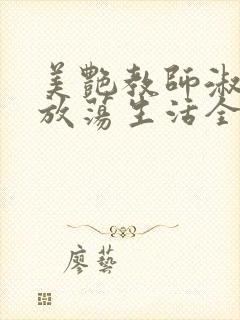 美艷教師淑
放蕩生活全
廖藝